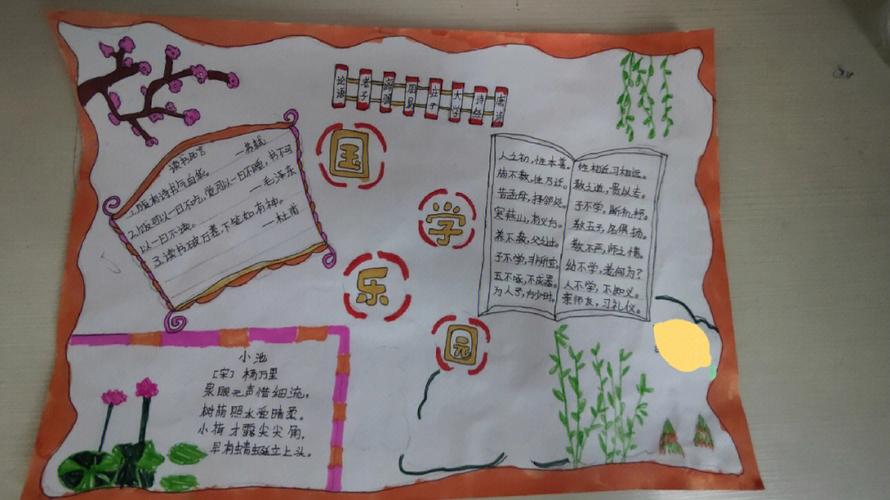 论语
老子
周易
庄子
大学
诗经
唐诗
国
学
乐
园
读书名言
1.腹有诗书气自华 ——苏轼
2.饭可以一日不吃,觉可以一日不睡,书不可
以一日不读。 ——毛泽东
3.读书破万卷,下笔如有神。
——杜甫
人之初,性本善。
苟不教,性乃迁。
昔孟母,择邻处。
窦燕山,有义方。
养不教,父之过。
子不学,非所宜。
玉不琢,不成器。
为人子,方少时。
性相近,习相远。
教之道,贵以专。
子不学,断机杼。
教五子,名俱扬。
教不严,师之惰。
幼不学,老何为?
人不学,不知义。
亲师友,习礼仪。
小池
[宋] 杨万里
泉眼无声惜细流,
树荫照水爱晴柔。
小荷才露尖尖角,
早有蜻蜓立上头。